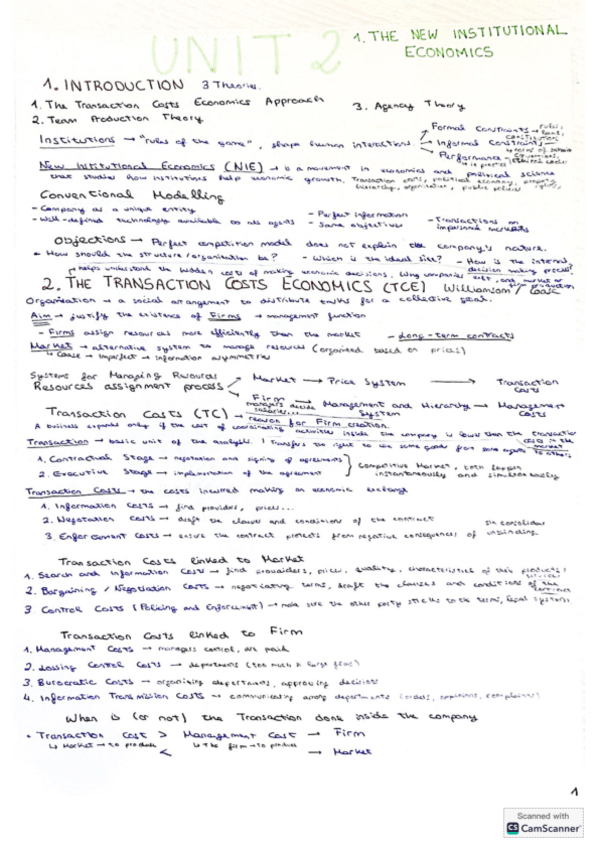 UNIT 2
1. THE NEW INSTITUTIONAL
ECONOMICS
1. INTRODUCTION 3 Theories.
1. The Transaction Costs Economics Approach
3. Agency Theory
2. Team Production Theory
Institutions → "rules of the game", shape human interactions.
Formal Constraints → rules, laws, constitutions
Informal Constraints →
Performance
New Istitutional Economics (NIE) → is a movement in economics and political science
that studies how institutions help economic growth, transaction costs, political economy, property rights,
hierarchy, organization, public policies
Conventional Modelling
- Company as a unique entity
- Perfect information
- Transactions on
impersonal markets
- Well-defined technology available to all agents
- Same objectives
Objections → Perfect competition model does not explain the company's nature.
• How should the structure/organization be?
- Which is the ideal size?
- How is the internal
decision making process?
↳ helps understand the hidden costs of making economic decisions. Why companies exist, and market or
firm production
2. THE TRANSACTION COSTS ECONOMICS (TCE) Williamson / Coase
Organization → a social arrangement to distribute tasks for a collective goal.
Aim → justify the existence of Firms → management function
- Firms assign resources more efficiently than the market
- Long-term contracts
Market → alternative system to manage resources (organized based on prices)
↳ Coase → Imperfect → information asymmetries
Systems for Managing Resources
Resources assignment process
Market → Price System → Transaction
Costs
Firm → Management and Hierarchy → Management
System Costs
managers decide
salaries...
Transaction Costs (TC) → reason for Firm creation
A business expands only if the cost of coordinating activities inside the company is lower than the transaction
costs in the
market
Transaction → basic unit of the analysis. / Transfers the right to use some goods from some agents to others
1. Contractual Stage → negotiation and signing of agreements
2. Executive Stage → implementation of the agreement
Competitive Market, both happen
instantaneously and simultaneously
Transaction Costs → the costs incurred making an economic exchange
1. Information Costs → find providers, prices...
2. Negotiation Costs → draft the clauses and conditions of the contract
3. Enforcement Costs → ensure the contract protects from negative consequences of
Transaction Costs linked to Market
1. Search and Information Costs → find provaiders, prices, quality, characteristics of their products/
services
2. Bargaining / Negotiation Costs → negotiating terms, draft the clauses and conditions of the
contract
3 Control Costs (Policing and Enforcement) → make sure the other party sticks to the terms, legal system.
Transaction Costs linked to Firm
1. Management Costs → managers control, are paid
2. Lossing Control Costs → departments (too much a large firm)
3. Burocratic Costs → organising departments, approving decisions
4. Information Transmission Costs → communicating among departments (orders, opinions, complaints)
When is (or not) the Transaction done inside the company
• Transaction Cost > Management Cost → Firm
↳ Market → to produce
↳ The firm → to produce
< → Market
1
Scanned with
CS CamScanner